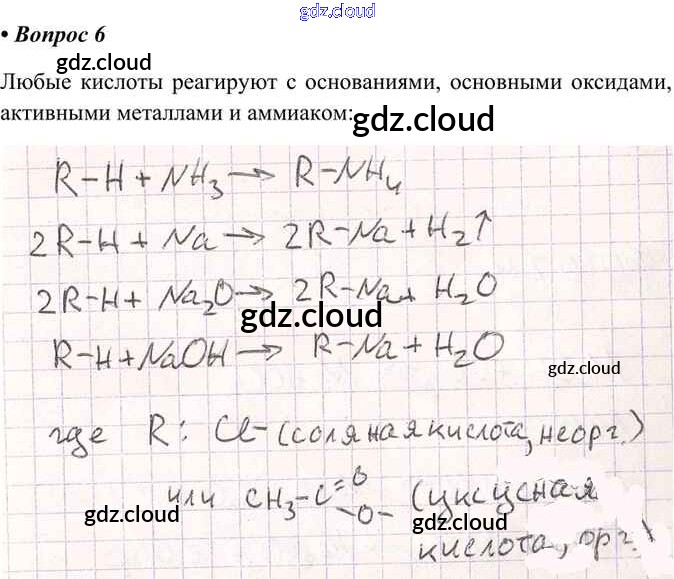 gdz.cloud
• Вопрос 6
gdz.cloud
gdz.cloud
Любые кислоты реагируют с основаниями, основными оксидами,
активными металлами и аммиаком:
gdz.cloud
R-H + NH₃ → R-NH₄
2R-H + Na → 2R-Na + H₂↑
2R-H + Na₂O → 2R-Na + H₂O
gdz.cloud
R-H + NaOH → R-Na + H₂O
gdz.cloud
где R: Cl- (соляная кислота, неорг.)
или CH₃-C=O -O- (уксусная
gdz.cloud
gdz.cloud
кислота, орг.)
gdz.cloud